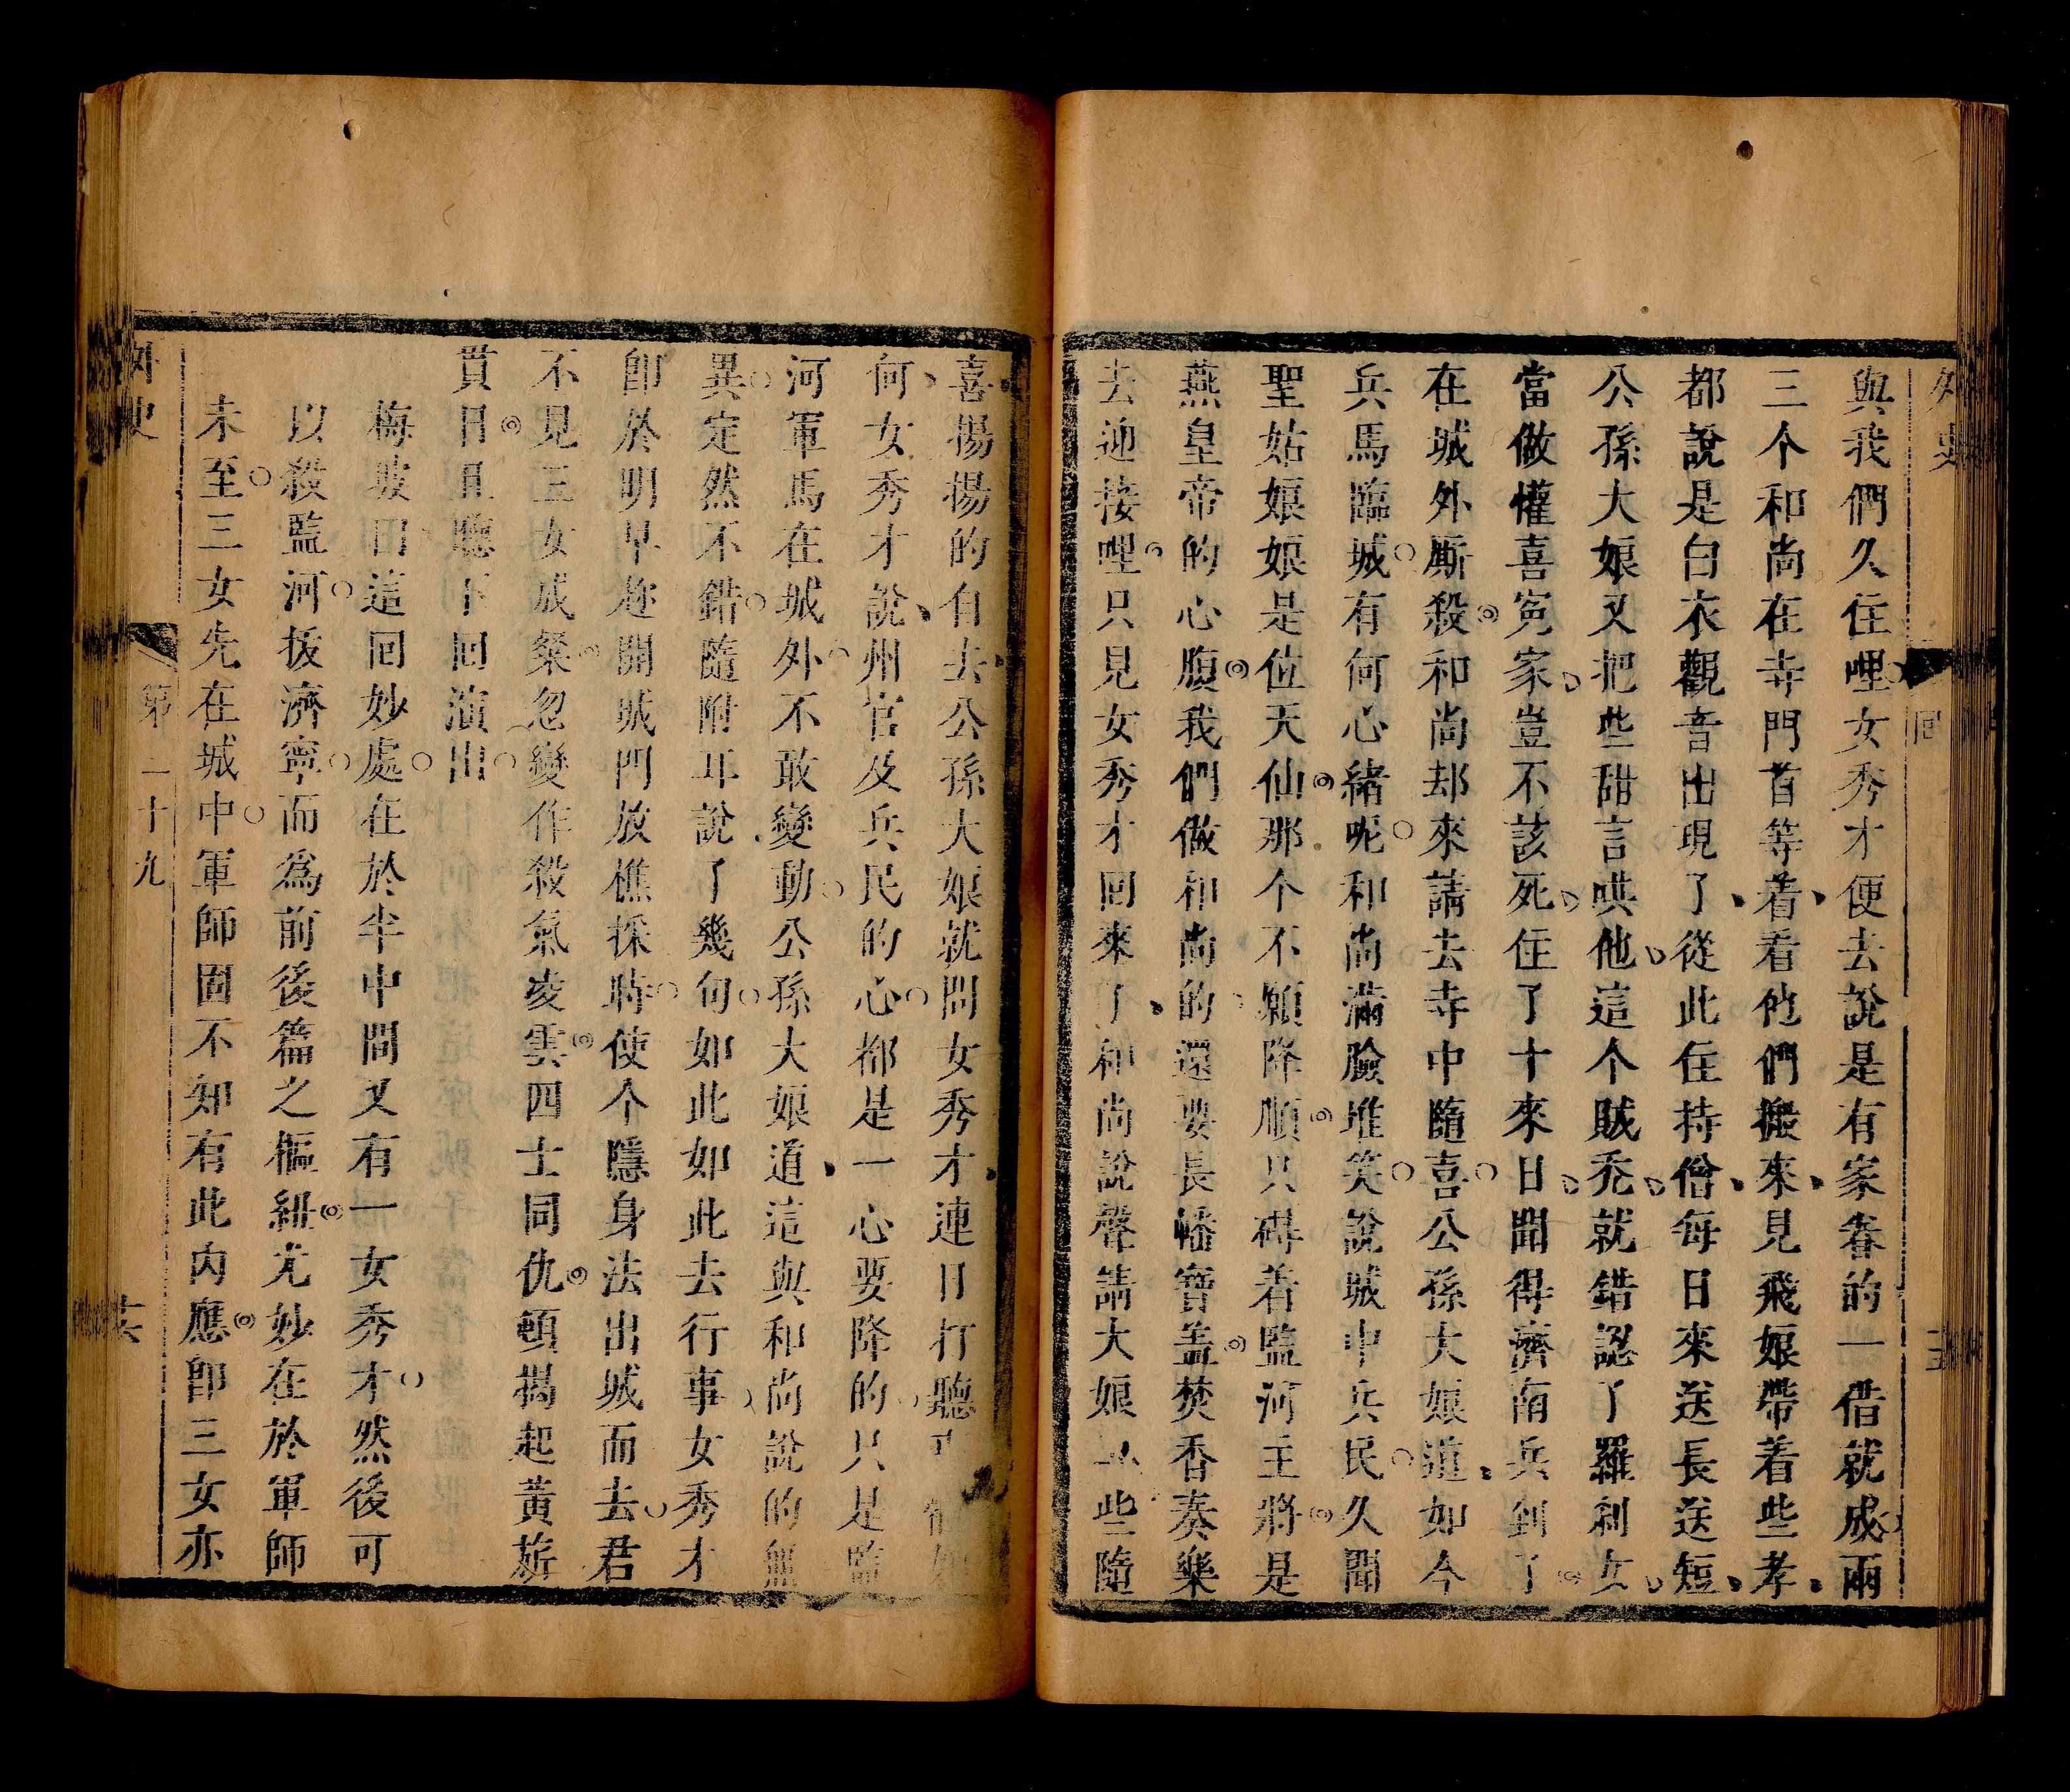 外史
回
與我們久住哩女秀才便去說是有家眷的一借就成兩
三个和尚在寺門首等着看他們搬來見飛娘帶着些孝
都說是白衣觀音出現了從此住持僧每日來送長送短
公孫大娘又把些甜言哄他這个賊禿就錯認了羅刹女
當做懽喜寃家豈不該死住了十來日聞得濟南兵到了
在城外廝殺和尚却來請去寺中隨喜公孫大娘道如今
兵馬臨城有何心緒呢和尚滿臉堆笑說城中兵民久聞
聖姑娘娘是位天仙那个不願降順只碍着監河主將是
燕皇帝的心腹我們做和尚的還要長幡寶盖焚香奏樂
去迎接哩只見女秀才回來了和尚說聲請大娘些隨
喜揚揚的自去公孫大娘就問女秀才連日打聽
何女秀才說州官及兵民的心都是一心要降的只是監
河軍馬在城外不敢變動公孫大娘道這與和尚說的無
異定然不錯隨附耳說了幾句如此如此去行事女秀才
卽於明早趂開城門放樵採時使个隱身法出城而去君
不見三女成粲忽變作殺氣凌雲四士同仇頓揭起黃旂
貫日且聽下回演出
梅坡曰這回妙處在於半中間又有一女秀才然後可
以殺監河拔濟寧而爲前後篇之樞紐尤妙在於軍師
未至三女先在城中軍師固不知有此内應卽三女亦
外史
第二十九